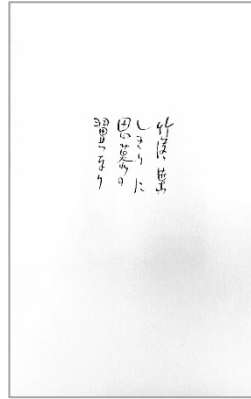 竹落葉
しきりに
思慕の
翼つなり